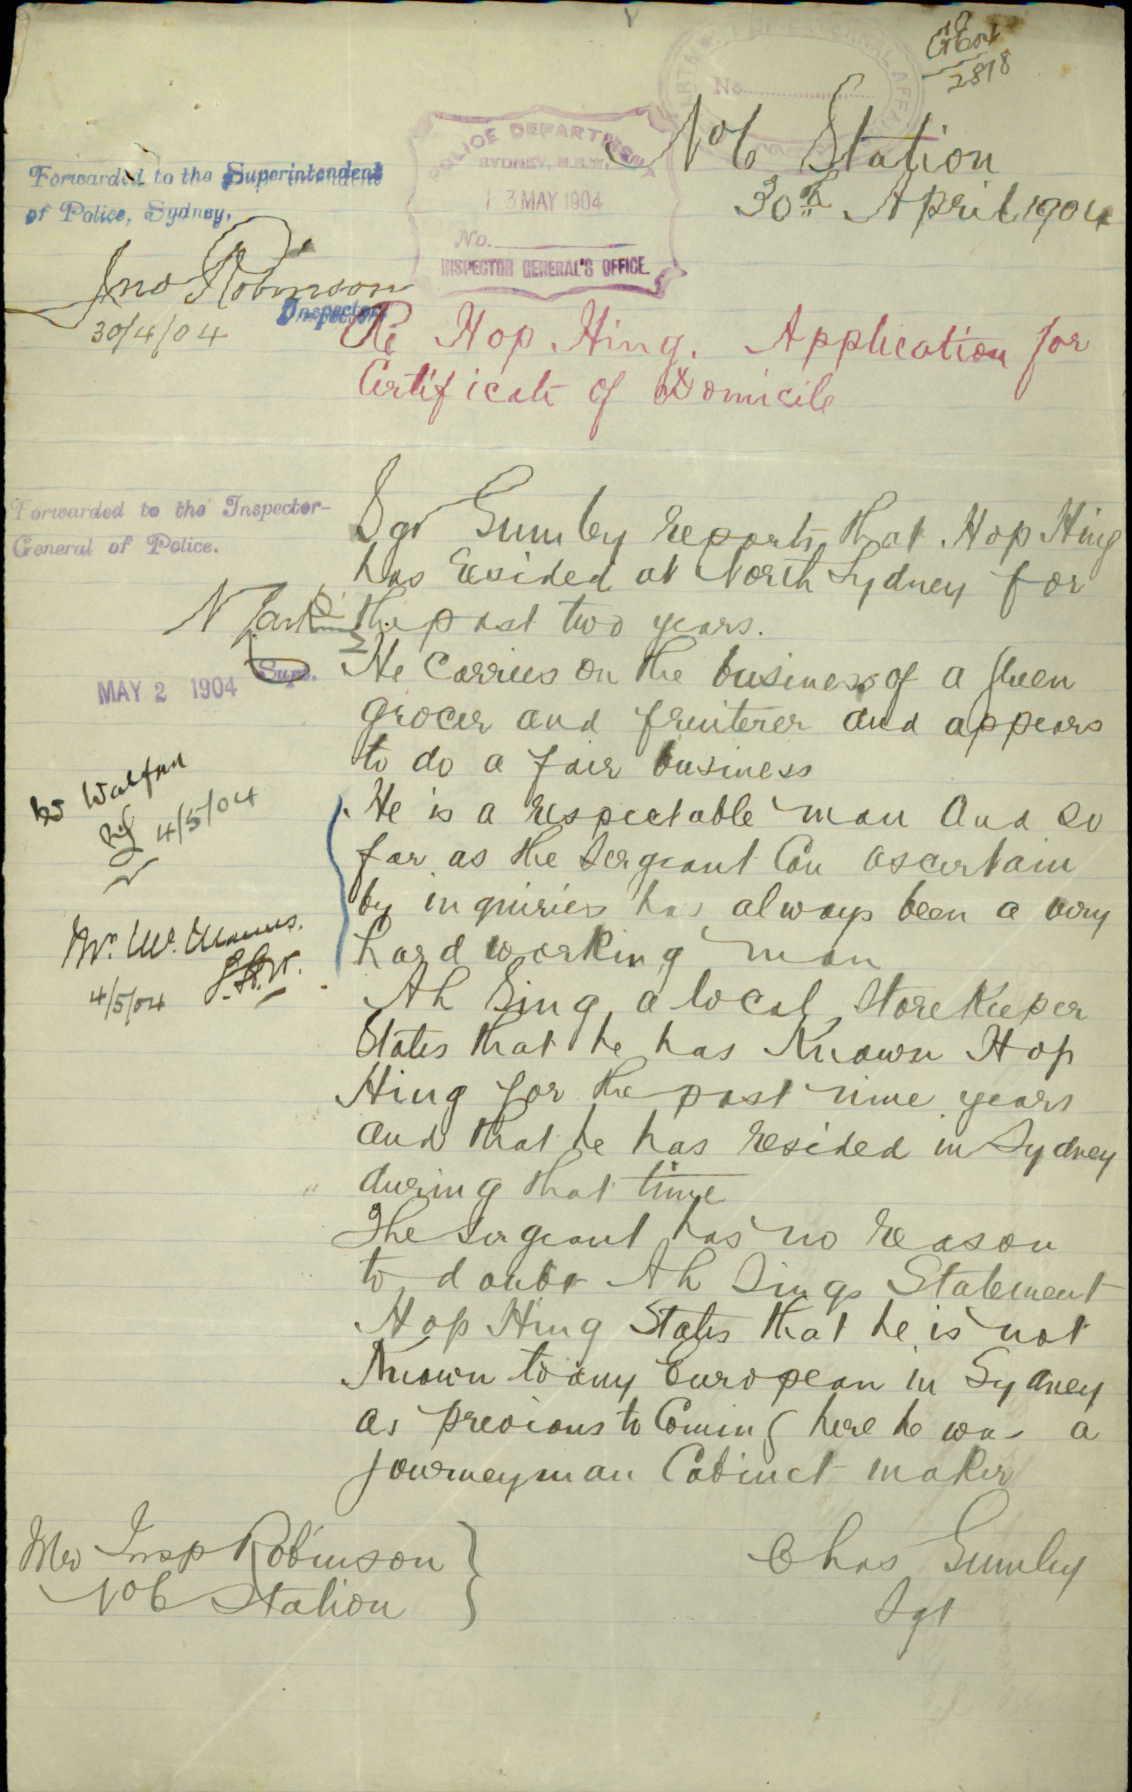 2878
No 6 Station
30th April 1904
DEPARTMENT OF EXTERNAL AFFAIRS
No.
POLICE DEPARTMENT
SYDNEY, N.S.W.
3 MAY 1904
No.
INSPECTOR GENERAL'S OFFICE.
Forwarded to the Superintendent
of Police, Sydney.
Jno Robinson
Inspector
30/4/04
Re Hop Hing. Application for
Certificate of Domicile
Forwarded to the Inspector-
General of Police.
Supt.
MAY 2 1904
4/5/04
4/5/04
Sgt Gumley reports that Hop Hing
has resided at North Sydney for
the past two years.
He carries on the business of a Green
grocer and fruiterer and appears
to do a fair business
He is a respectable man and so
far as the Sergeant can ascertain
by inquiries has always been a very
hard working man
Ah Sing a local Storekeeper
States that he has Known Hop
Hing for the past nine years
and that he has resided in Sydney
during that time
The Sergeant has no reason
to doubt Ah Sings Statement
Hop Hing States that he is not
Known to any European in Sydney
as previous to Coming here he was a
journeyman Cabinet maker
Chas Gumley
Sgt
Mr Insp Robinson
No 6 Station